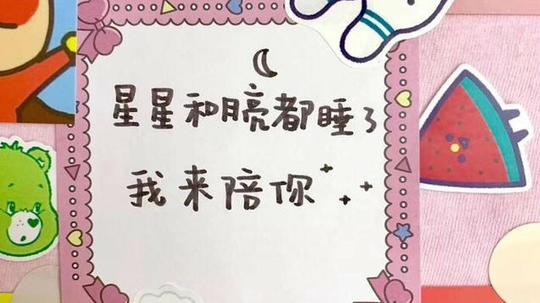 星星和月亮都睡了
我来陪你